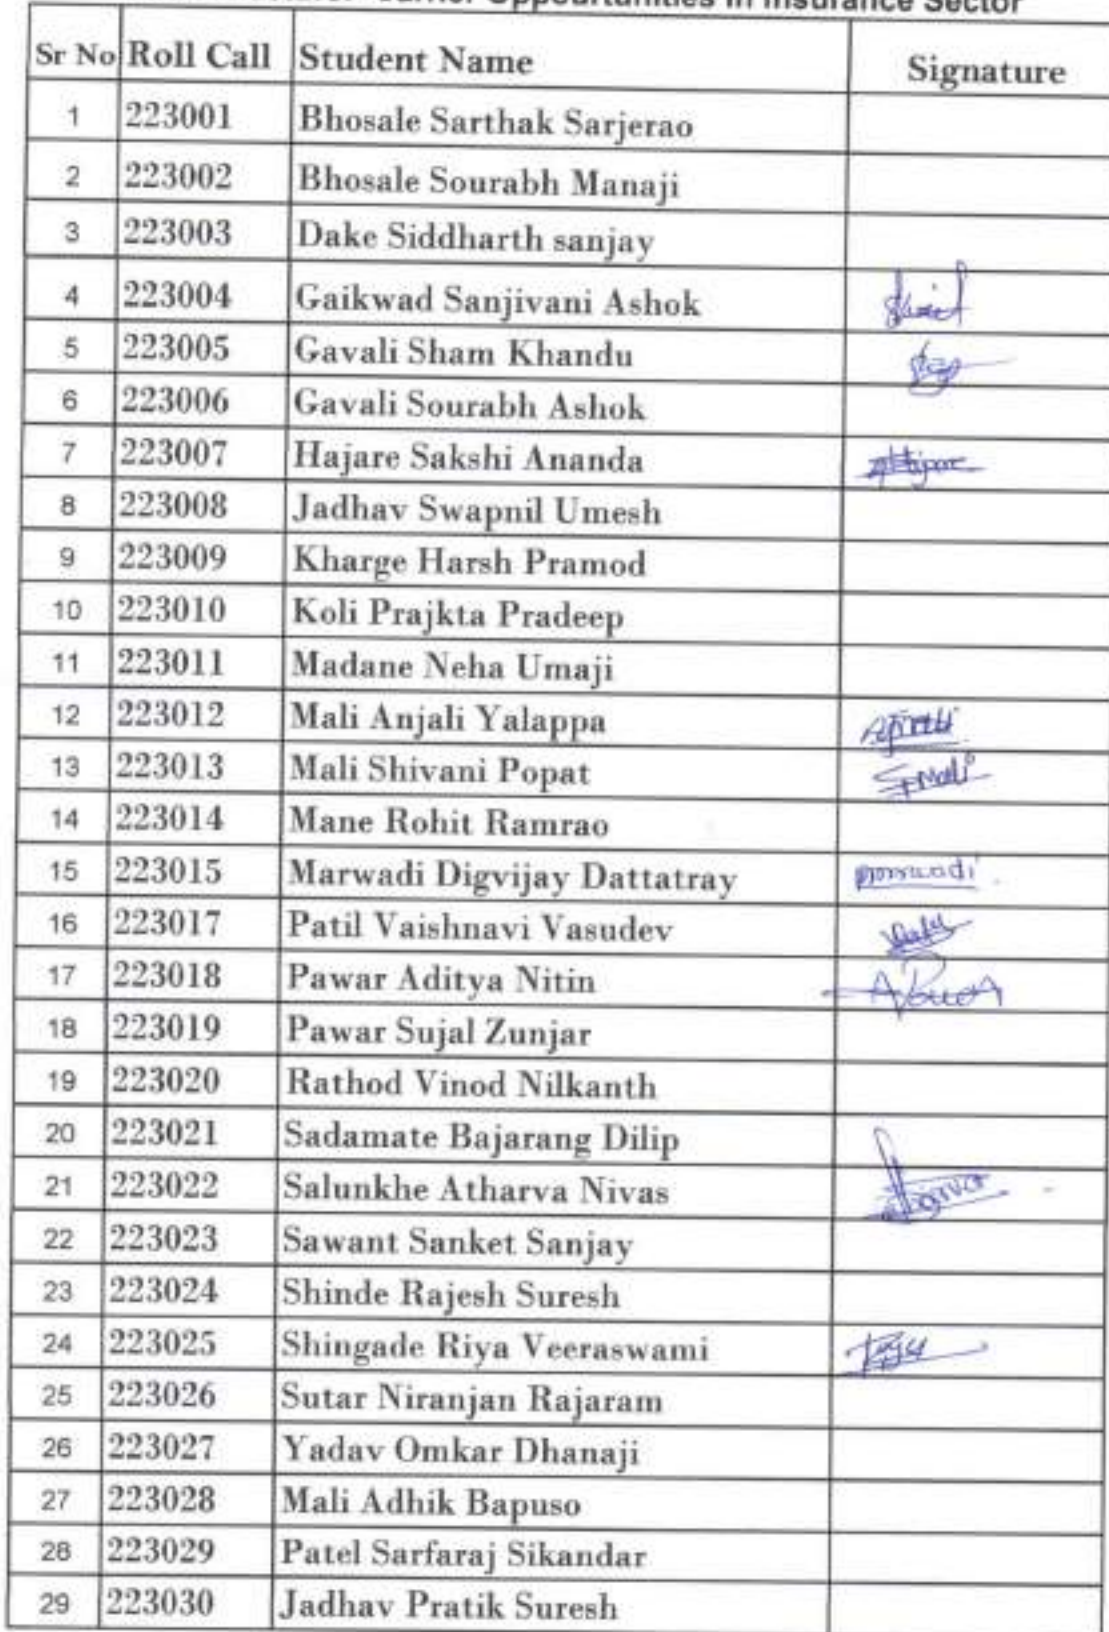 Carrier Oppourtunities in Insurance Sector
Sr No Roll Call Student Name Signature
1 223001 Bhosale Sarthak Sarjerao
2 223002 Bhosale Sourabh Manaji
3 223003 Dake Siddharth sanjay
4 223004 Gaikwad Sanjivani Ashok
5 223005 Gavali Sham Khandu
6 223006 Gavali Sourabh Ashok
7 223007 Hajare Sakshi Ananda
8 223008 Jadhav Swapnil Umesh
9 223009 Kharge Harsh Pramod
10 223010 Koli Prajkta Pradeep
11 223011 Madane Neha Umaji
12 223012 Mali Anjali Yalappa
13 223013 Mali Shivani Popat SPMali
14 223014 Mane Rohit Ramrao
15 223015 Marwadi Digvijay Dattatray
16 223017 Patil Vaishnavi Vasudev
17 223018 Pawar Aditya Nitin
18 223019 Pawar Sujal Zunjar
19 223020 Rathod Vinod Nilkanth
20 223021 Sadamate Bajarang Dilip
21 223022 Salunkhe Atharva Nivas
22 223023 Sawant Sanket Sanjay
23 223024 Shinde Rajesh Suresh
24 223025 Shingade Riya Veeraswami
25 223026 Sutar Niranjan Rajaram
26 223027 Yadav Omkar Dhanaji
27 223028 Mali Adhik Bapuso
28 223029 Patel Sarfaraj Sikandar
29 223030 Jadhav Pratik Suresh